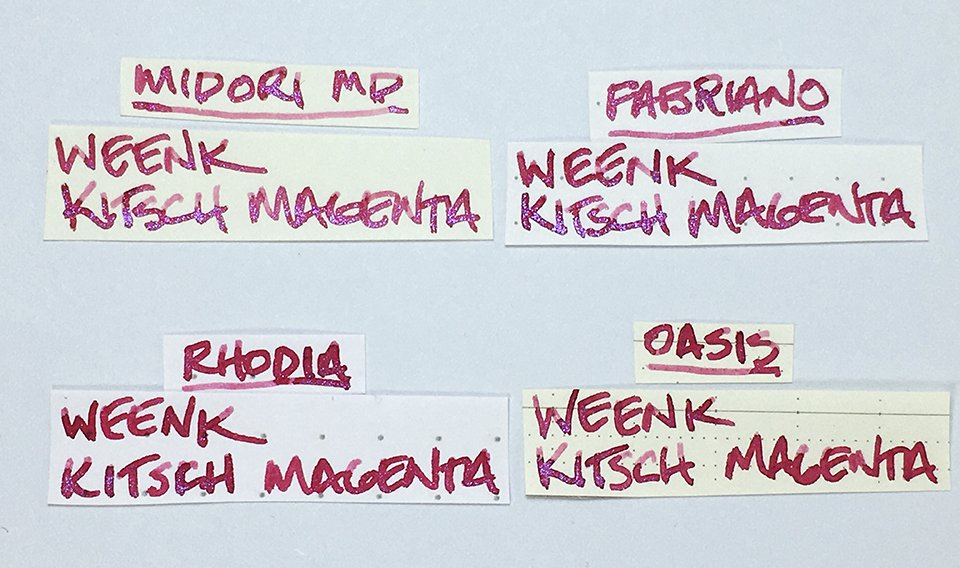 MIDORI MD
WEENK
KITSCH MAGENTA
FABRIANO
WEENK
KITSCH MAGENTA
RHODIA
WEENK
KITSCH MAGENTA
OASIS
WEENK
KITSCH MAGENTA